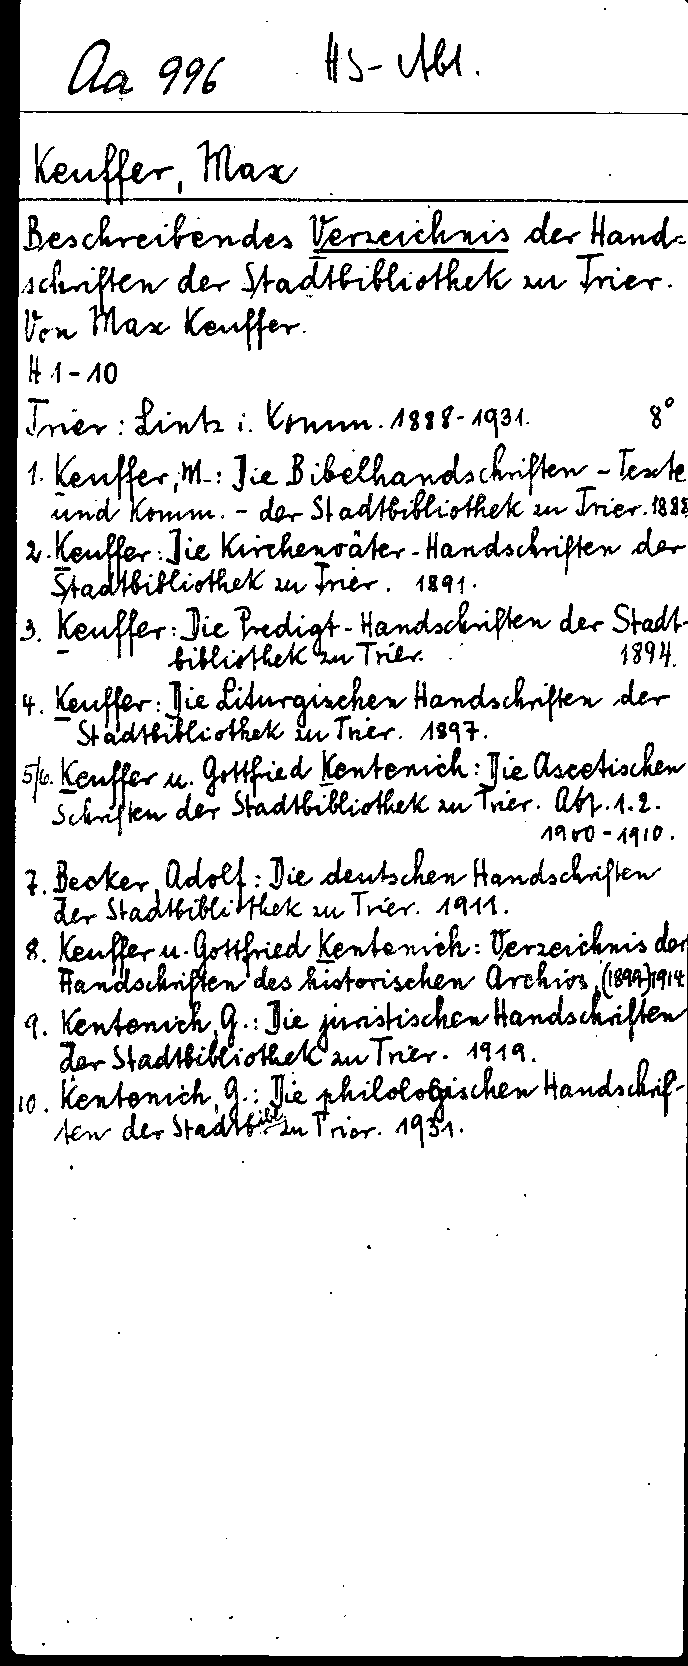 Aa 996 HS-Abt.
Keuffer, Max
Beschreibendes Verzeichnis der Hand=
schriften der Stadtbibliothek zu Trier.
Von Max Keuffer.
H 1-10
Trier: Lintz i. Komm. 1888-1931. 8°
1. Keuffer, M.: Die Bibelhandschriften - Texte
und Komm. - der Stadtbibliothek zu Trier. 1888
2. Keuffer: Die Kirchenväter-Handschriften der
Stadtbibliothek zu Trier. 1891.
3. Keuffer: Die Predigt-Handschriften der Stadt-
bibliothek zu Trier. 1894.
4. Keuffer: Die Liturgischen Handschriften der
Stadtbibliothek zu Trier. 1897.
5/6. Keuffer u. Gottfried Kentenich: Die Ascetischen
Schriften der Stadtbibliothek zu Trier. Abt. 1.2.
1900-1910.
7. Becker, Adolf: Die deutschen Handschriften
der Stadtbibliothek zu Trier. 1911.
8. Keuffer u. Gottfried Kentenich: Verzeichnis der
Handschriften des historischen Archivs. (1899) 1914
9. Kentenich, G.: Die juristischen Handschriften
der Stadtbibliothek zu Trier. 1919.
10. Kentenich, G.: Die philologischen Handschrif-
ten der Stadtbibl. zu Trier. 1931.